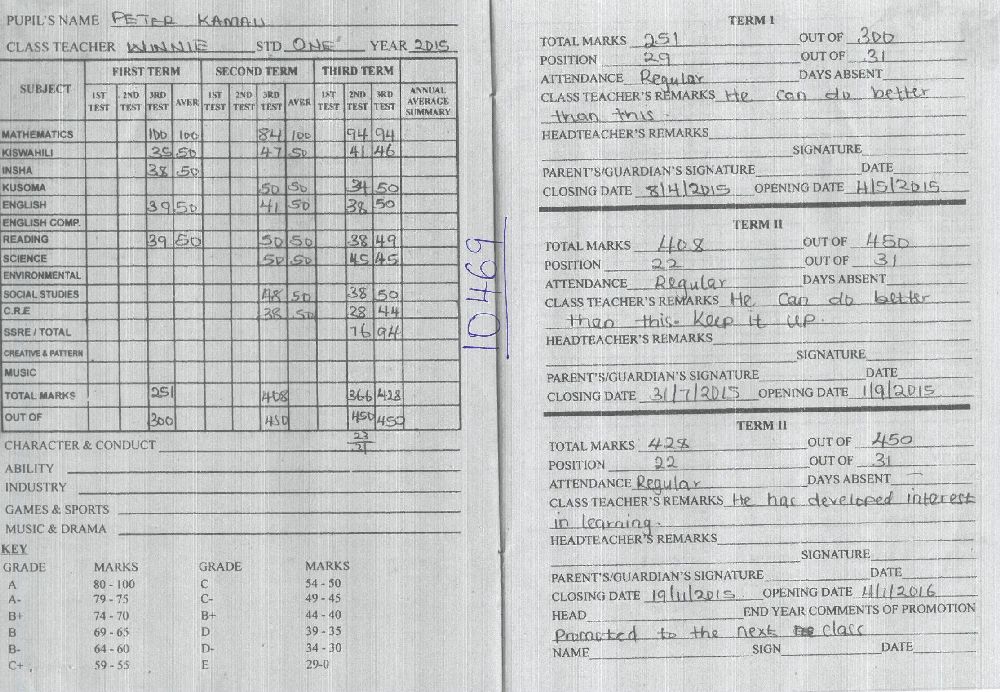 PUPIL'S NAME PETER KAMAU
CLASS TEACHER WINNIE STD ONE YEAR 2015
SUBJECT FIRST TERM SECOND TERM THIRD TERM ANNUAL AVERAGE SUMMARY
1ST TEST 2ND TEST 3RD TEST AVER 1ST TEST 2ND TEST 3RD TEST AVER 1ST TEST 2ND TEST 3RD TEST
MATHEMATICS 100 100 84 100 94 94
KISWAHILI 35 50 47 50 41 46
INSHA 38 50
KUSOMA 50 50 34 50
ENGLISH 39 50 41 50 38 50
ENGLISH COMP.
READING 39 50 50 50 38 49
SCIENCE 50 50 45 45
ENVIRONMENTAL
SOCIAL STUDIES 48 50 38 50
C.R.E 38 50 28 44
SSRE / TOTAL 76 94
CREATIVE & PATTERN
MUSIC
TOTAL MARKS 251 408 366 428
OUT OF 300 450 450 450
CHARACTER & CONDUCT
ABILITY
INDUSTRY
GAMES & SPORTS
MUSIC & DRAMA
KEY
GRADE MARKS GRADE MARKS
A 80 - 100 C 54 - 50
A- 79 - 75 C- 49 - 45
B+ 74 - 70 B+ 44 - 40
B 69 - 65 D 39 - 35
B- 64 - 60 D- 34 - 30
C+ 59 - 55 E 29-0
10469
TERM I
TOTAL MARKS 251 OUT OF 300
POSITION 29 OUT OF 31
ATTENDANCE Regular DAYS ABSENT
CLASS TEACHER'S REMARKS He can do better
than this.
HEADTEACHER'S REMARKS
SIGNATURE
PARENT'S/GUARDIAN'S SIGNATURE DATE
CLOSING DATE 8/4/2015 OPENING DATE 4/5/2015
TERM II
TOTAL MARKS 408 OUT OF 450
POSITION 22 OUT OF 31
ATTENDANCE Regular DAYS ABSENT
CLASS TEACHER'S REMARKS He Can do better
than this. Keep it up.
HEADTEACHER'S REMARKS
SIGNATURE
PARENT'S/GUARDIAN'S SIGNATURE DATE
CLOSING DATE 31/7/2015 OPENING DATE 1/9/2015
TERM II
TOTAL MARKS 428 OUT OF 450
POSITION 22 OUT OF 31
ATTENDANCE Regular DAYS ABSENT
CLASS TEACHER'S REMARKS He has developed interest
in learning.
HEADTEACHER'S REMARKS
SIGNATURE
PARENT'S/GUARDIAN'S SIGNATURE DATE
CLOSING DATE 19/11/2015 OPENING DATE 4/1/2016
HEAD END YEAR COMMENTS OF PROMOTION
Promoted to the next class
NAME SIGN DATE